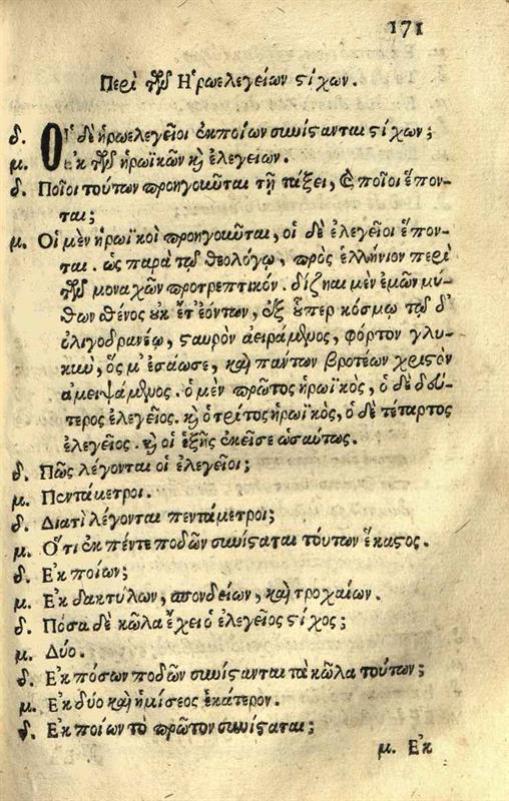 171
Περὶ τῶν Ἡρωελεγείων στίχων.
δ. Οἱ δὲ ἡρωελεγεῖοι ἐκ ποίων συνίστανται στίχων;
μ. Ἐκ τῶν ἡρωϊκῶν καὶ ἐλεγείων.
δ. Ποῖοι τούτων προηγοῦνται τῇ τάξει, καὶ ποῖοι ἕπον-
ται;
μ. Οἱ μὲν ἡρωϊκοὶ προηγοῦνται, οἱ δὲ ἐλεγεῖοι ἕπον-
ται. ὡς παρὰ τῷ θεολόγῳ, πρὸς ἑλλήνιον περὶ
τῶν μοναχῶν προτρεπτικόν. δίζηαι μὲν ἐμῶν μύ-
θων σθένος οὐκ ἔτ' ἐόντων, ἐξ ὗπερ κόσμῳ τῷ δ'
ὀλιγοδρανέω, σταυρὸν ἀειράμενος, φόρτον γλυ-
κιὺ, ὅς μ' ἐσάωσε, καὶ πάντων βροτέων χριστὸν
ἀμειψάμενος. ὁ μὲν πρῶτος ἡρωϊκός, ὁ δὲ δεύ-
τερος ἐλεγεῖος. καὶ ὁ τρίτος ἡρωϊκὸς, ὁ δὲ τέταρτος
ἐλεγεῖος. καὶ οἱ ἑξῆς ἐκεῖσε ὡσαύτως.
δ. Πῶς λέγονται οἱ ἐλεγεῖοι;
μ. Πεντάμετροι.
δ. Διατὶ λέγονται πεντάμετροι;
μ. Ὅτι ἐκ πέντε ποδῶν συνίσταται τούτων ἕκαστος.
δ. Ἐκ ποίων;
μ. Ἐκ δακτύλων, σπονδείων, καὶ τροχαίων.
δ. Πόσα δὲ κῶλα ἔχει ὁ ἐλεγεῖος στίχος;
μ. Δύο.
δ. Ἐκ πόσων ποδῶν συνίστανται τὰ κῶλα τούτων;
μ. Ἐκ δύο καὶ ἡμίσεος ἑκάτερον.
δ. Ἐκ ποίων τὸ πρῶτον συνίσταται;
μ. Ἐκ